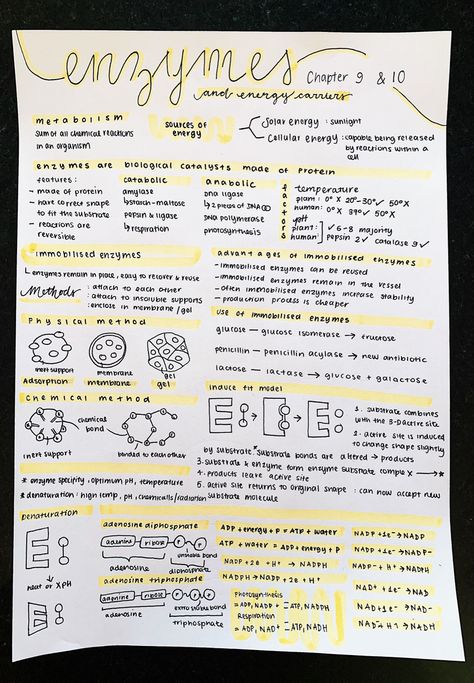 enzymes
Chapter 9 & 10
and energy carriers
metabolism
sum of all chemical reactions
in an organism
sources of
energy
Solar energy : sunlight
Cellular energy : capable being released
by reactions within a
cell
enzymes are biological catalysts made of protein
features :
- made of protein
- have correct shape
to fit the substrate
- reactions are
reversible
catabolic
amylase
↳ starch-maltose
pepsin & ligase
↳ respiration
anabolic
DNA ligase
↳ 2 pieces of DNA
DNA polymerase
photosynthesis
factors
temperature
plant : 0° X 20°-30° ✓ 50° X
human : 0° X 37° ✓ 50° X
pH
plant : ✓ 6-8 majority
human : pepsin 2 ✓ catalase 9 ✓
immobilised enzymes
↳ enzymes remain in place, easy to recover & reuse
Methods : attach to each other
: attach to insoluble supports
: enclose in membrane / gel
advantages of immobilised enzymes
- immobilised enzymes can be reused
- immobilised enzymes remain in the vessel
- often immobilised enzymes increase stability
- production process is cheaper
Physical method
inert support
Adsorption
membrane
membrane
gel
gel
use of immobilised enzymes
glucose — glucose isomerase → fructose
penicillin — penicillin acylase → new antibiotic
lactose — lactase → glucose + galactose
chemical method
chemical
bond
inert support
bonded to each other
induce fit model
1. substrate combines
with the 3-D active site
2. active site is induced
to change shape slightly
by substrate * substrate bonds are altered → products
3. substrate & enzyme form enzyme substrate complex → *
4. products leave active site
5. active site returns to original shape : can now accept new
substrate molecule
* enzyme specifity, optimum pH, temperature
* denaturation : high temp, pH, chemicals/radiation
Denaturation
heat or XPH
adenosine diphosphate
adenine ribose P P
unstable bond
adenosine diphosphate
adenosine triphosphate
adenine ribose P P P
extra stable bond
adenosine triphosphate
ADP + energy + P = ATP + water
ATP + water = ADP + energy + P
NADP + 2e + H⁺ → NADPH
NADPH → NADP + 2e + H⁺
Photosynthesis
= ADP, NADP = ATP, NADPH
Respiration
= ADP, NAD⁺ = ATP, NADH
NADP + 1e⁻ → NADP
NADP + 1e⁻ → NADP⁻
NADP⁻ + H⁺ → NADPH
NAD⁺ + 1e⁻ → NAD
NAD + 1e⁻ → NAD⁻
NAD⁻ + H⁺ → NADH